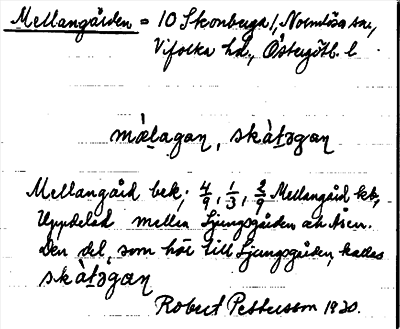 Mellangården = 10 Skonberga /, Normlösa sn,
Vifolka hd., Östergötl. l.
mæ̀lagan, skàtəgan
Mellangård bek; 4/9, 1/3, 2/9 Mellangård kb,
Uppdelad mellan Ljungsgården och Åsen.
Den del, som hör till Ljungsgården, kallas
skàtəgan
Robert Pettersson 1930.